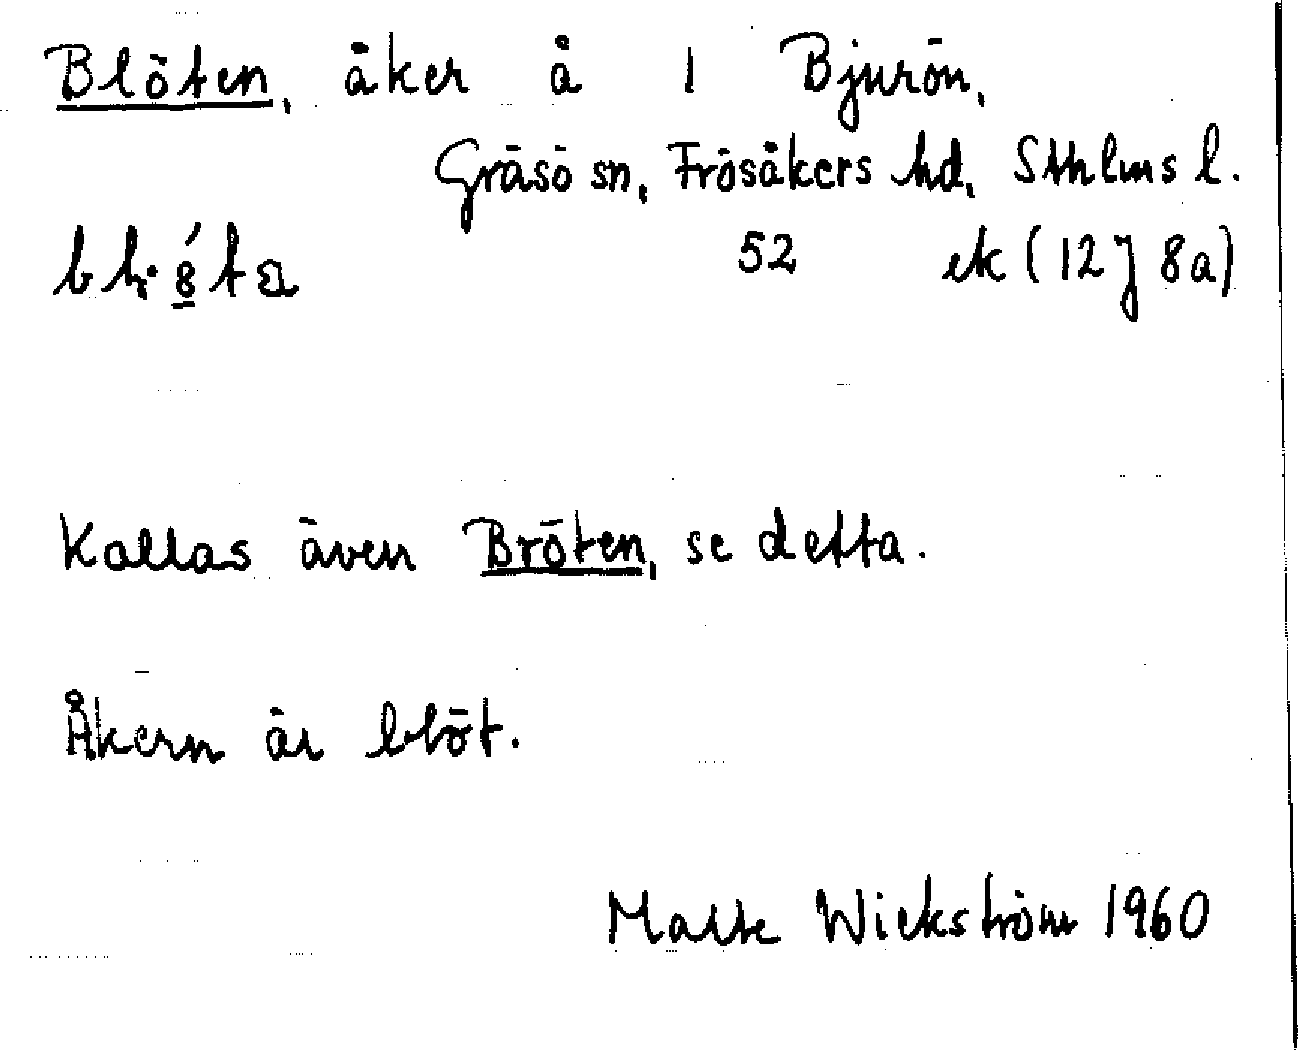 Blöten, åker å 1 Bjurön,
Gräsö sn, Frösåkers hd, Sthlms l.
52 ek (12 J 8a)
Kallas även Bröten, se detta.
Åkern är blöt.
Malte Wickström 1960